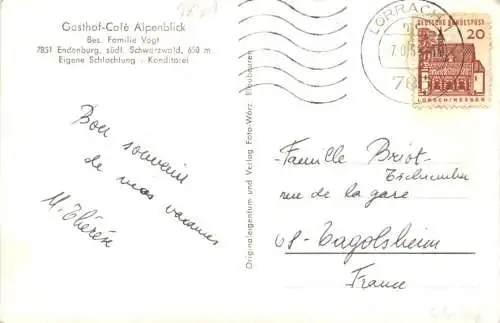 Gasthof-Café Alpenblick
Bes. Familie Vogt
7851 Endenburg, südl. Schwarzwald, 650 m
Eigene Schlachtung - Konditorei
Bon souvenir
de mes vacances
M. Thérèse
Originaleigentum und Verlag Foto-Wörz, Blaubeuren
LÖRRACH
DEUTSCHE BUNDESPOST
20
LORSCH/HESSEN
Famille Briot-
rue de la gare
68-Tagolsheim
France